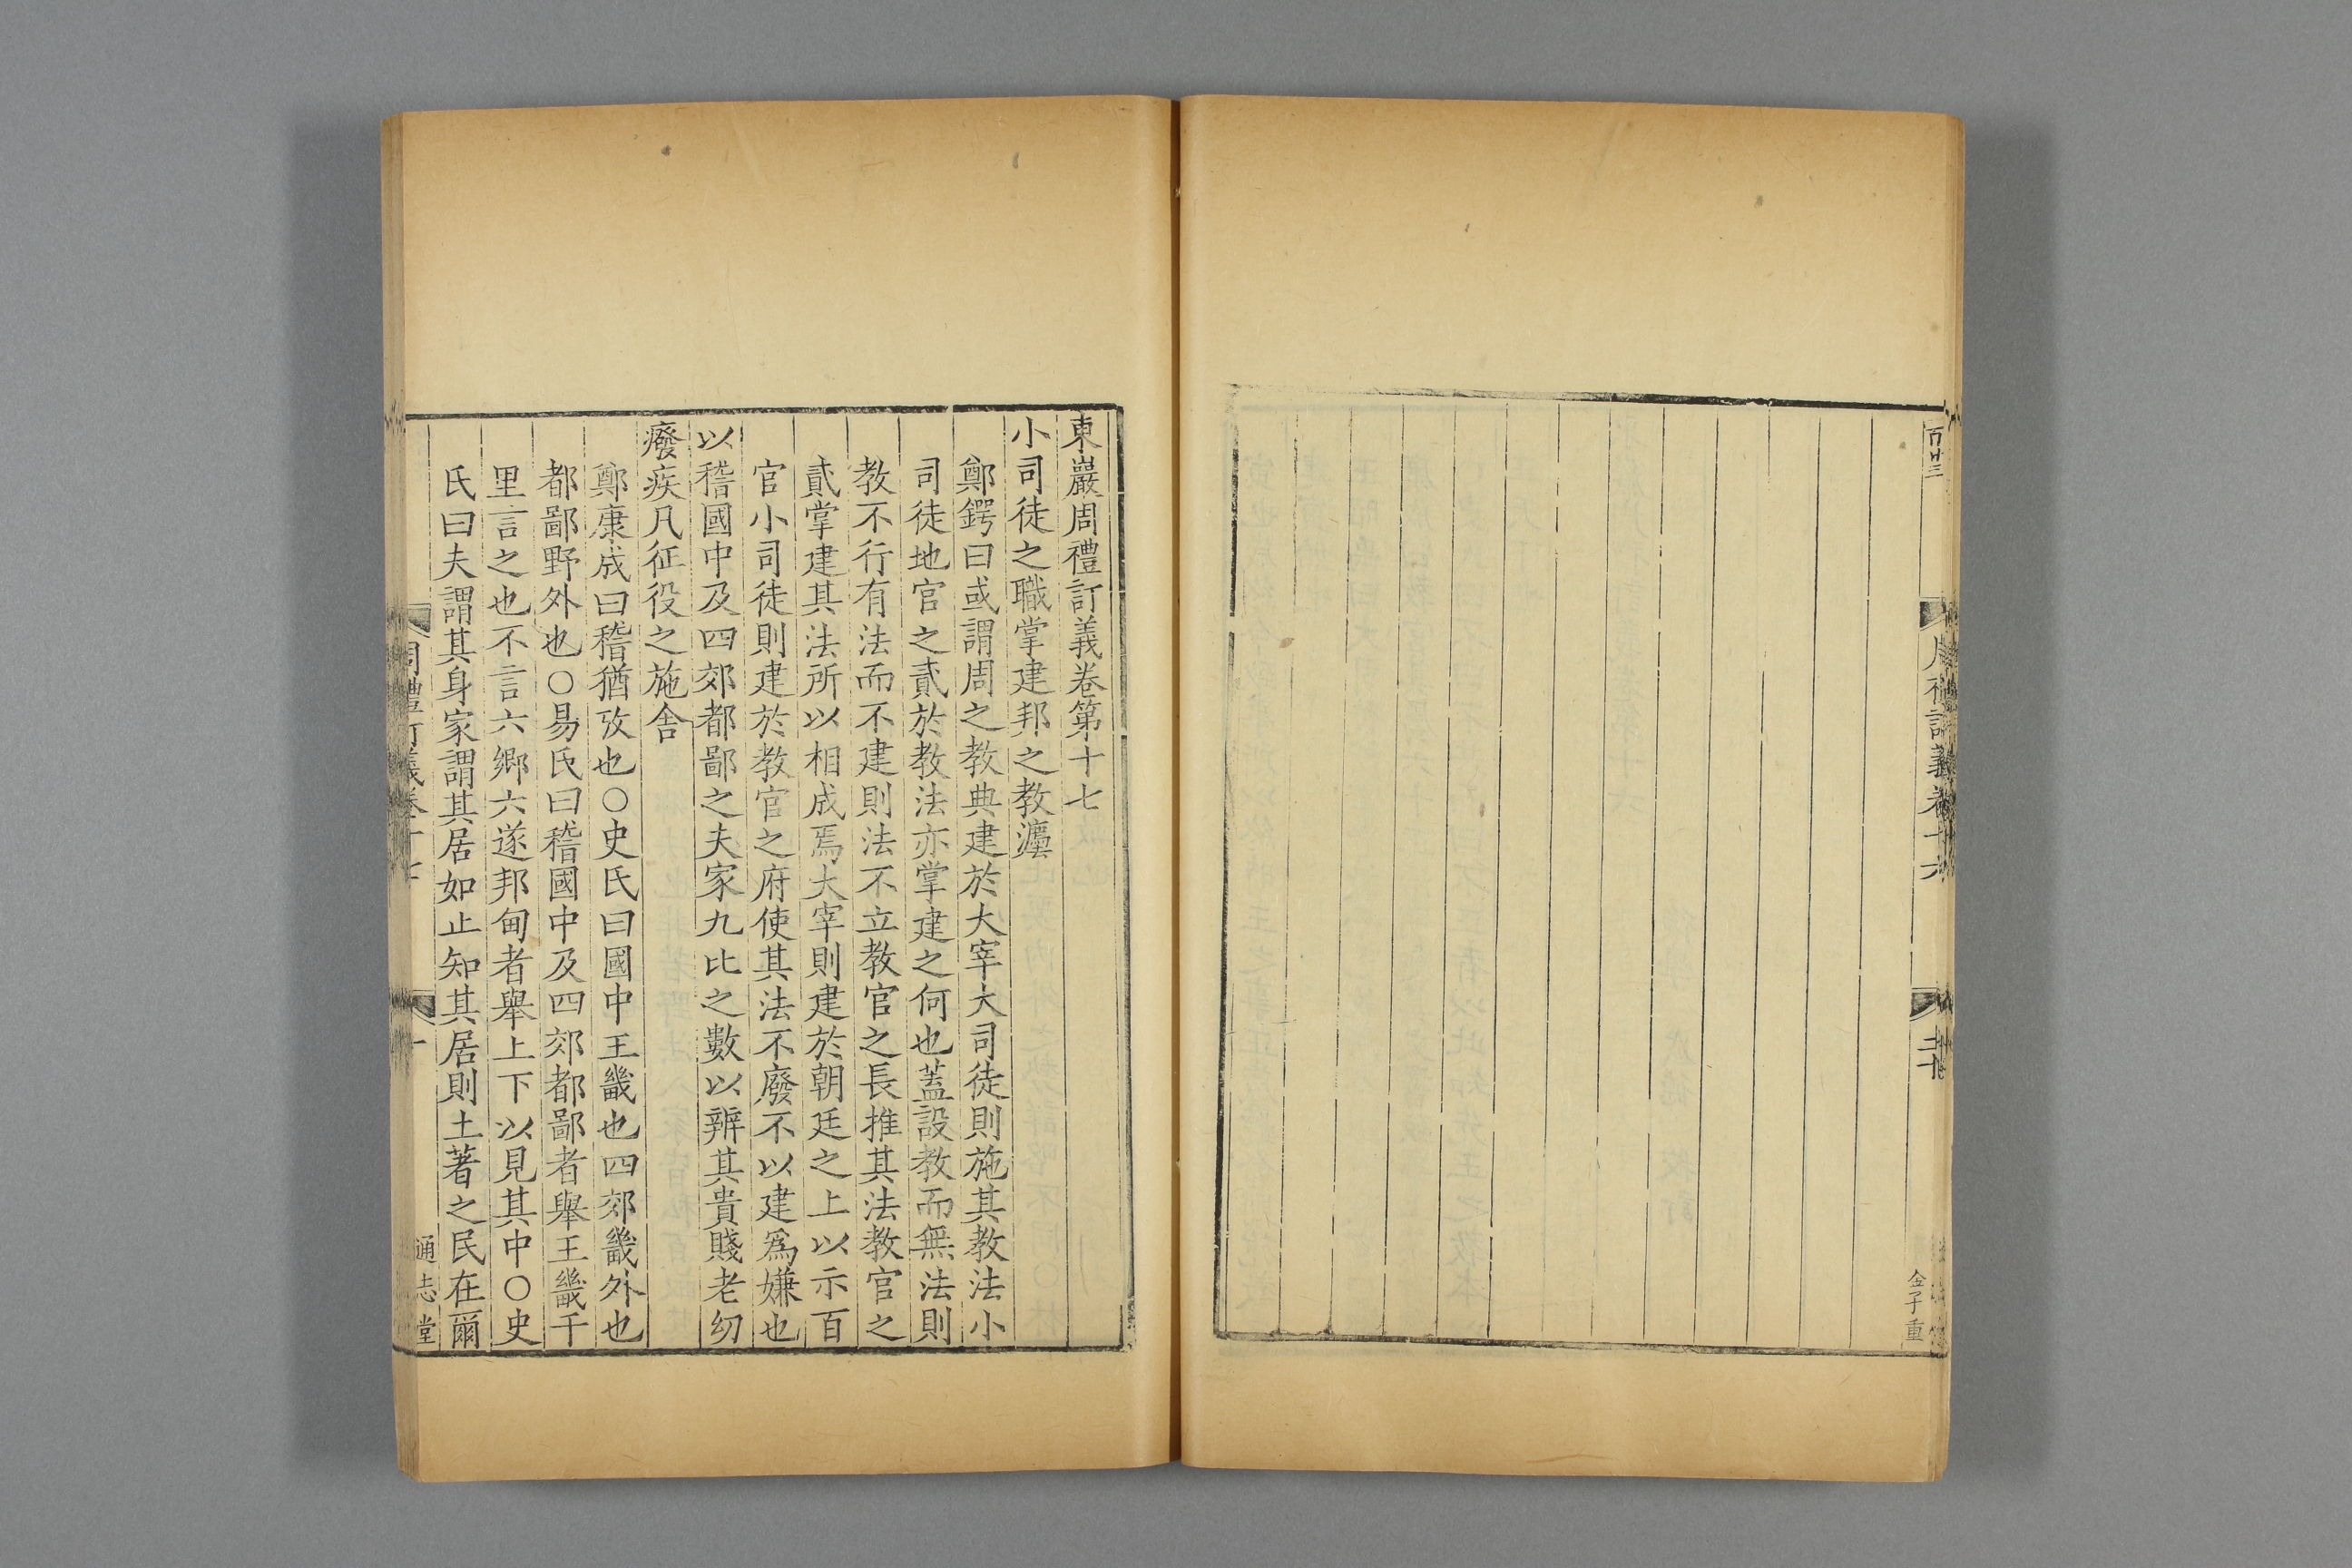 百廿三
周禮訂義卷十六
二十
金子重
東巖周禮訂義卷第十七
小司徒之職掌建邦之教灋
鄭鍔曰或謂周之教典建於大宰大司徒則施其教法小
司徒地官之貳於教法亦掌建之何也蓋設教而無法則
教不行有法而不建則法不立教官之長推其法教官之
貳掌建其法所以相成焉大宰則建於朝廷之上以示百
官小司徒則建於教官之府使其法不廢不以建爲嫌也
以稽國中及四郊都鄙之夫家九比之數以辨其貴賤老幼
癈疾凡征役之施舍
鄭康成曰稽猶攷也○史氏曰國中王畿也四郊畿外也
都鄙野外也○易氏曰稽國中及四郊都鄙者舉王畿千
里言之也不言六鄉六遂邦甸者舉上下以見其中○史
氏曰夫謂其身家謂其居如止知其居則土著之民在爾
周禮訂義卷十七
一
通志堂